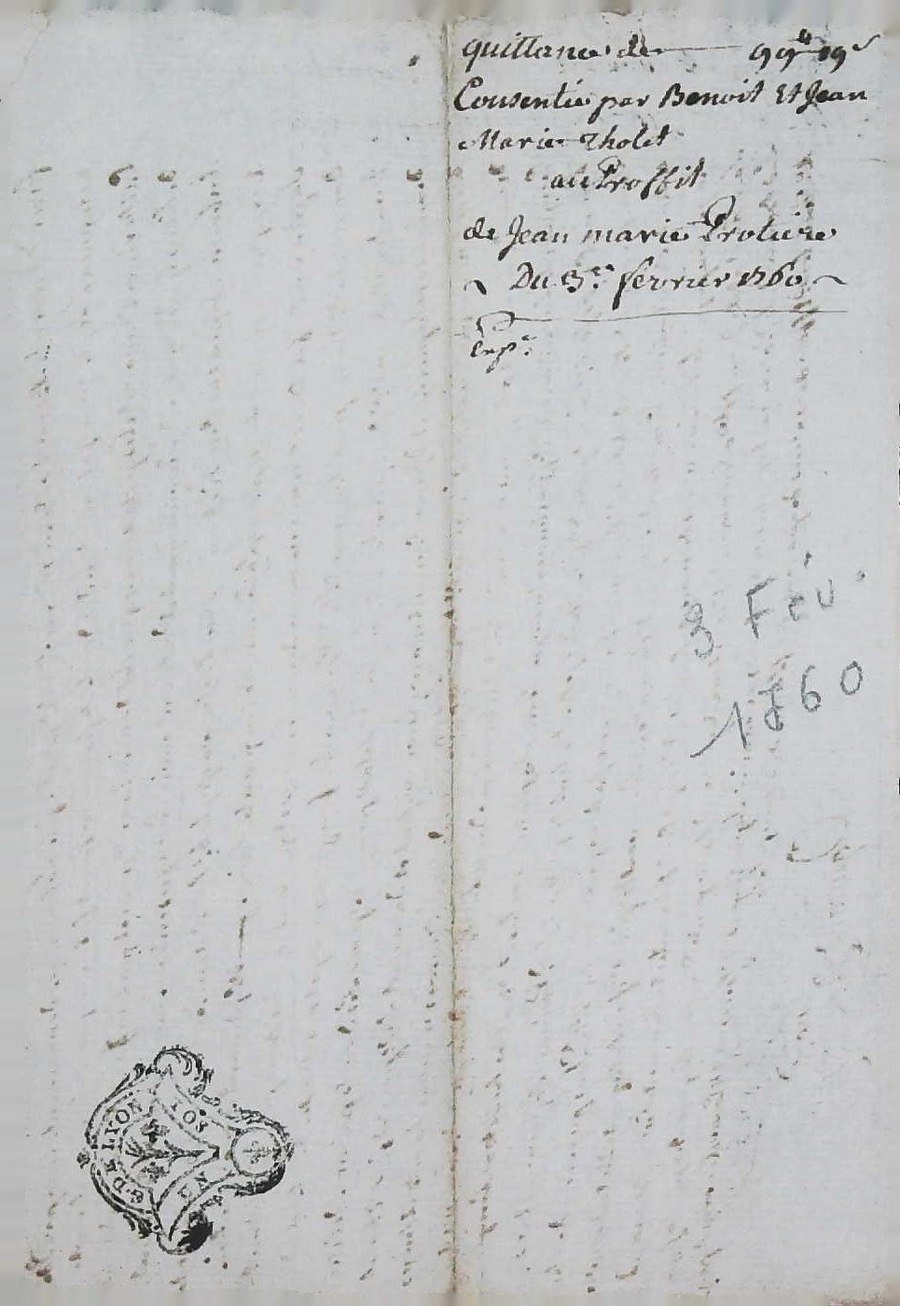 quittance de 99# 19s
Consentie par Benoit Et Jean
Marie Tholet
au Proffit
de Jean marie Protiere
Du 3e. fevrier 1760
Exp.
3 Fév.
1760
G. DE LYON
UN SOL